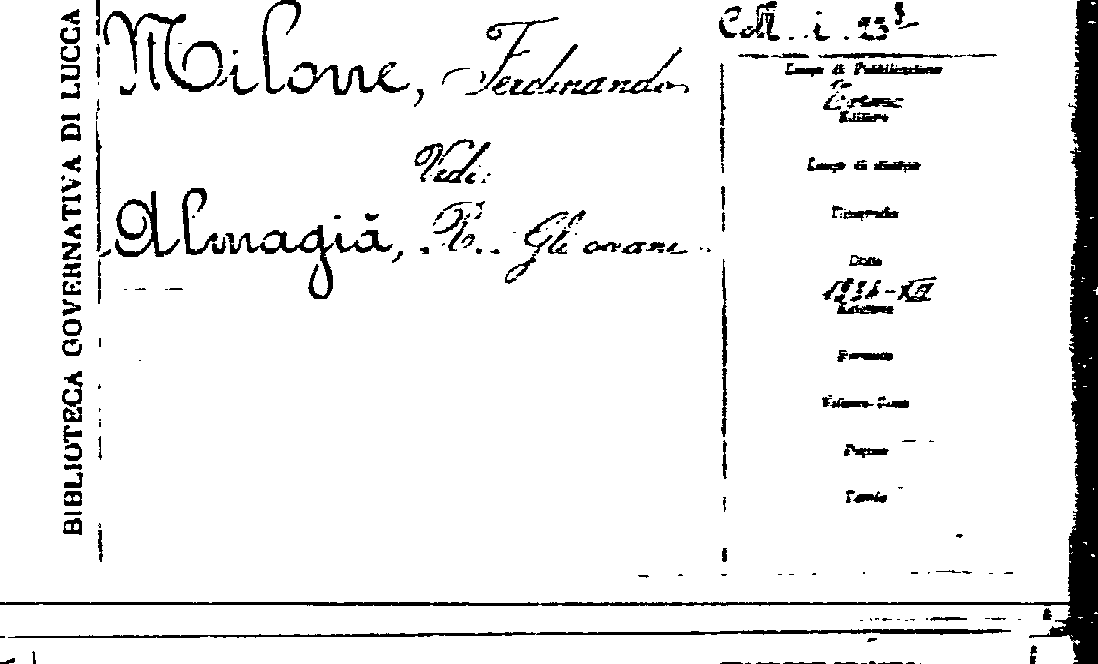 BIBLIOTECA GOVERNATIVA DI LUCCA
Milone, Ferdinando
Vedi:
Almagià, R. Gli
Coll. i. 23
Luogo di Pubblicazione
Editore
Luogo di stampa
Tipografo
Data
1934-XII
Edizione
Formato
Volume-Tomo
Pagine
Tavole